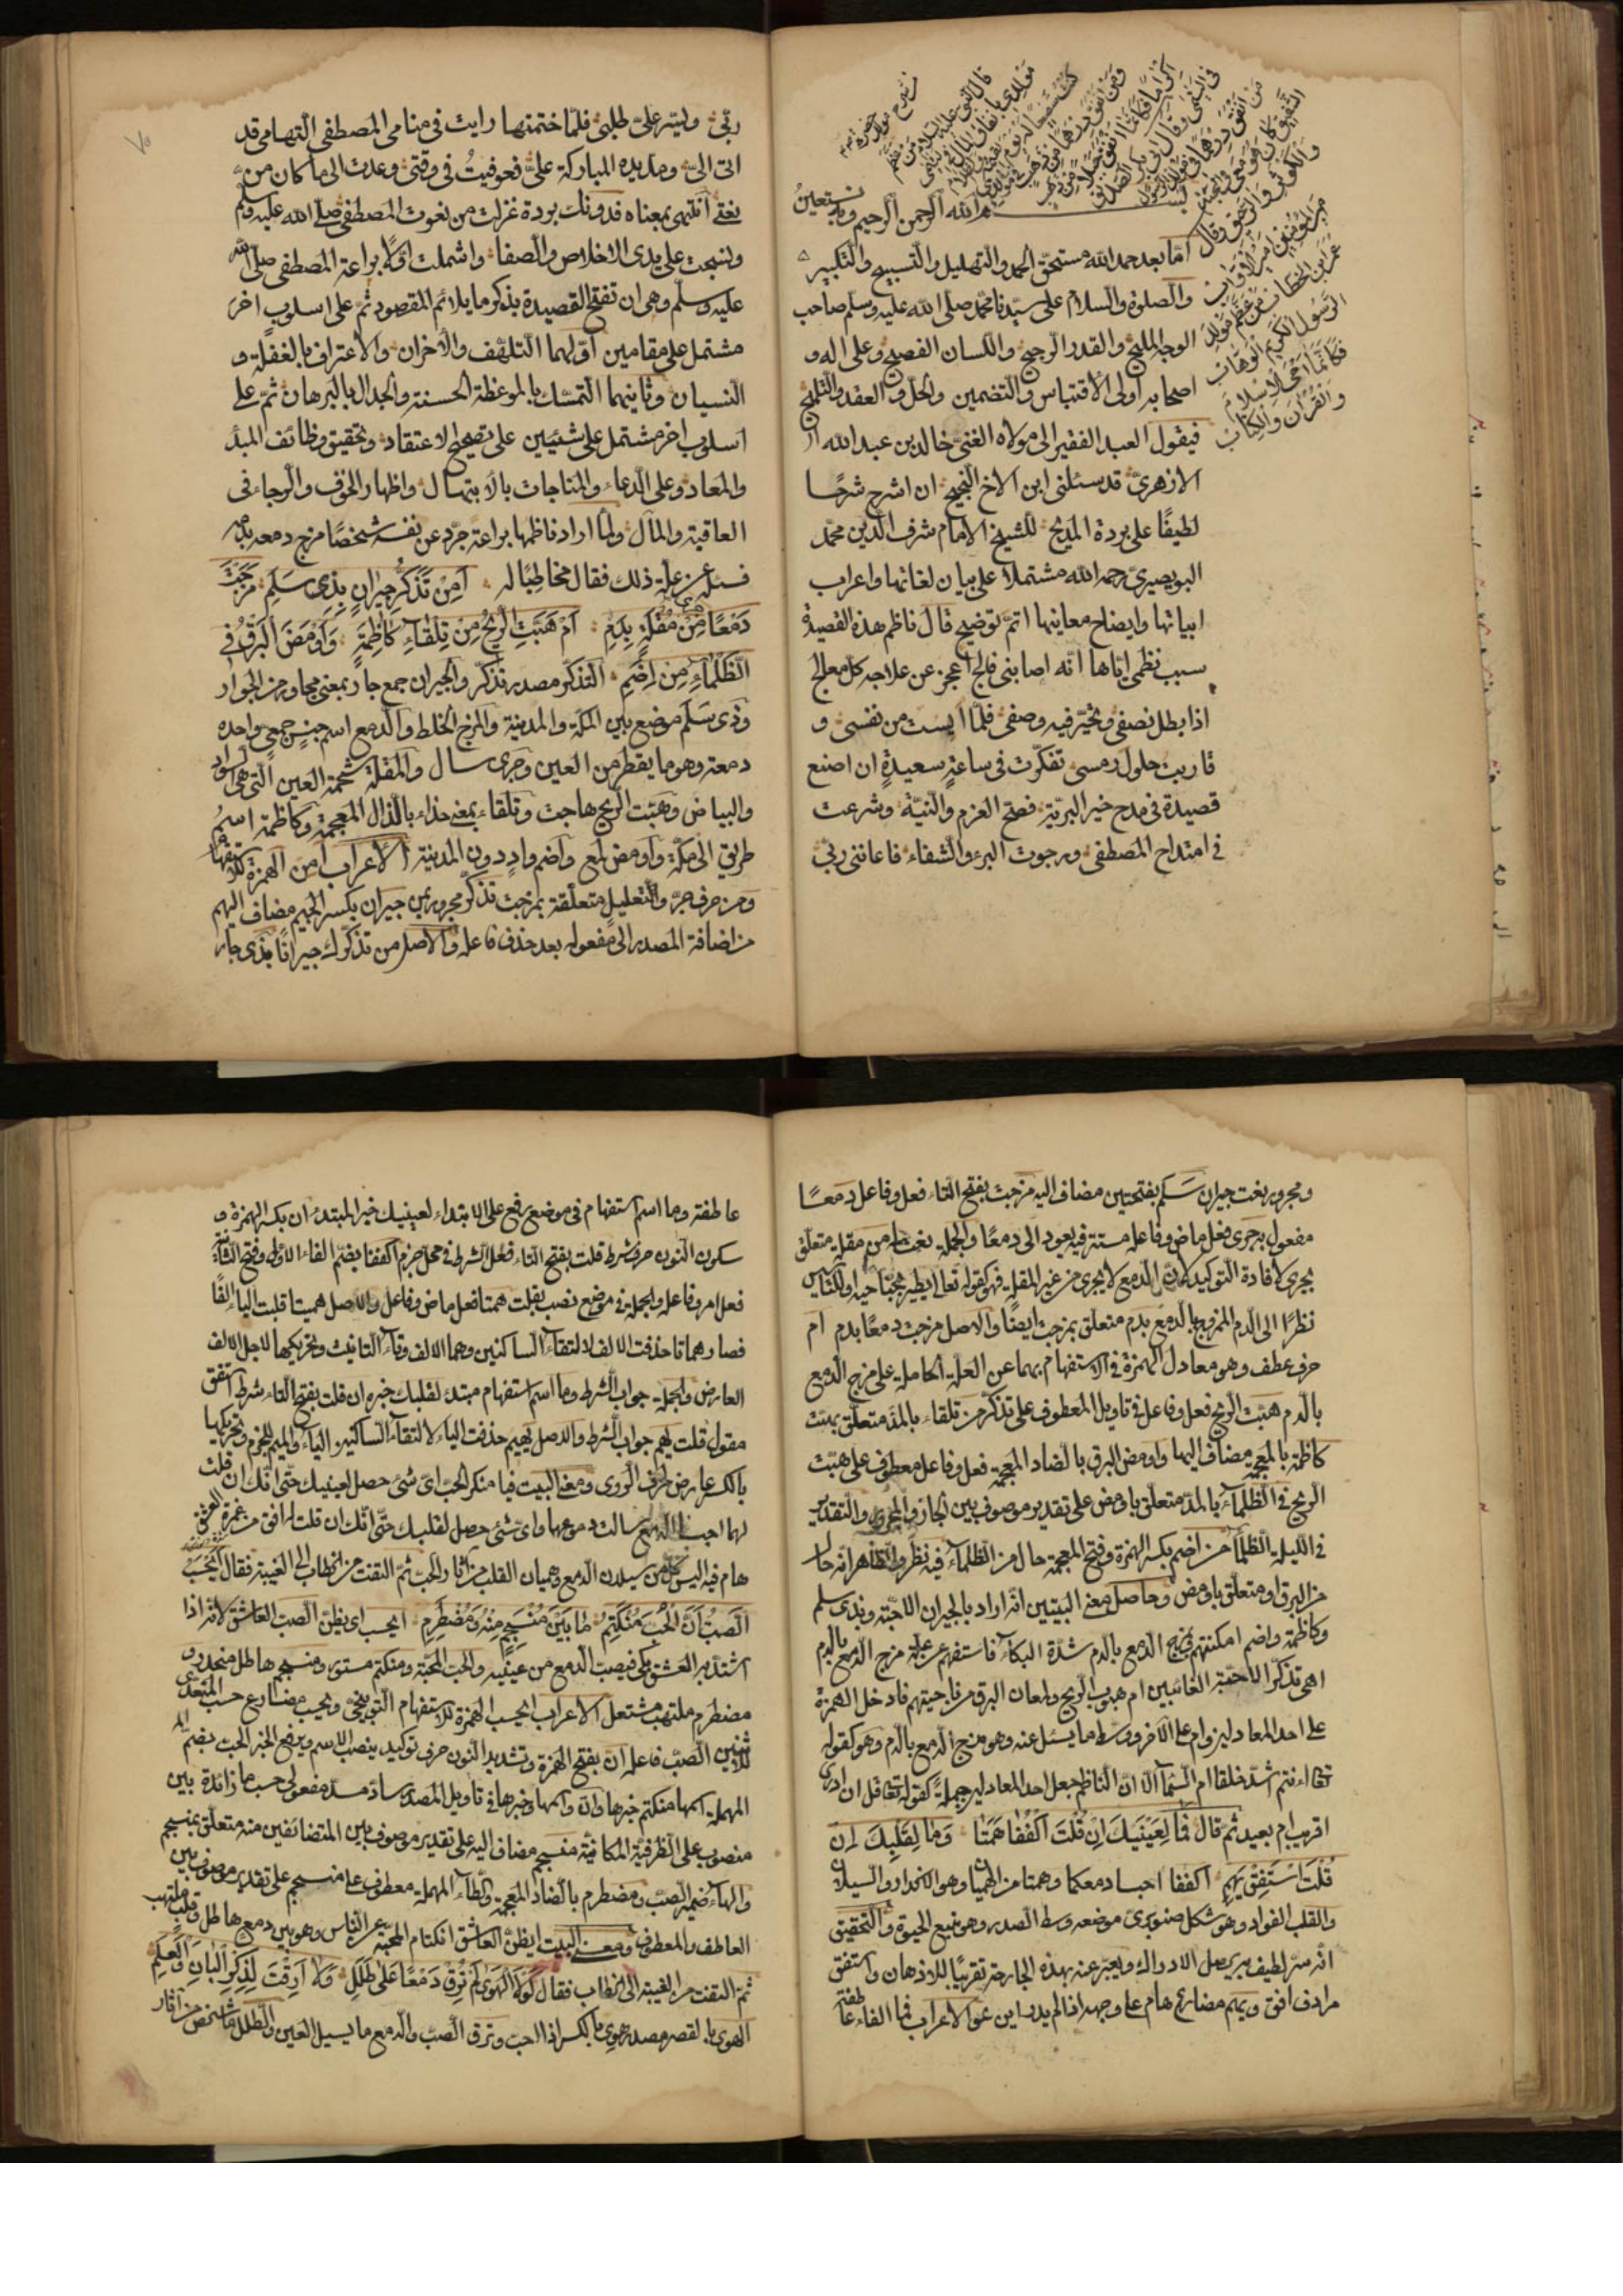 بسم الله الرحمن الرحيم وبه نستعين
اما بعد حمد الله مستحق الحمد والتهليل والتسبيح والتكبير
والصلوة والسلام على سيدنا محمد صلى الله عليه وسلم صاحب
الوجه المليح والقدر الرجيح واللسان الفصيح وعلى اله و
اصحابه اولى الاقتباس والتضمين والحل والعقد والتلميح
فيقول العبد الفقير الى مولاه الغنى خالد بن عبد الله
الازهرى قد سئلنى ابن الاخ النجيح ان اشرح شرحا
لطيفا على بردة المديح للشيخ الامام شرف الدين محمد
البوصيرى رحمه الله مشتملا على بيان لغاتها واعراب
ابياتها وايضاح معانيها اتم توضيح قال ناظم هذه القصيدة
سبب نظمى اياها انه اصابنى فالج اعجز عن علاجه كل معالج
اذا بطل نصفى وتحير فيه وصفى فلما ايست من نفسى و
قاربت حلول رمسى تفكرت فى ساعة سعيدة ان اصنع
قصيدة فى مدح خير البرية فصح العزم والنية وشرعت
فى امتداح المصطفى ورجوت البرء والشفاء فاعاننى ربى
ربى ويسر على طلبى فلما ختمتها رايت فى منامى المصطفى التهامى قد
اتى الى ومد يده المباركة على فعوفيت فى وقتى وعدت الى ما كان من
نعتى انتهى بمعناه فدونك بردة غزلت من نعوت المصطفى صلى الله عليه وسلم
ونسجت على يدى الاخلاص والصفا واشملت اولا براعة المصطفى صلى الله
عليه وسلم وهى ان تفتح القصيدة بذكر ما يلائم المقصود ثم على اسلوب اخر
مشتمل على مقامين اولهما التلهف والاحزان والاعتراف بالغفلة و
النسيان وثانيهما التمسك بالموعظة الحسنة والجدال بالبرهان ثم على
اسلوب اخر مشتمل على شيئين على تصحيح الاعتقاد وتحقيق وظائف المبدأ
والمعاد وعلى الدعاء والمناجات بالابتهال واظهار الخوف والرجاء فى
العاقبة والمآل ولما اراد ناظمها براعة جرد عن نفسه شخصا مزج دمعه بدمه
فسئله عن علة ذلك فقال مخاطبا له أمن تذكر جيران بذى سلم مزجت
دمعا جرى من مقلة بدم أم هبت الريح من تلقاء كاظمة وأومض البرق فى
الظلماء من إضم التذكر مصدر تذكر والجيران جمع جار بمعنى مجاور من الجوار
وذى سلم موضع بين المكة والمدينة والمزج الخلط والدمع اسم جنس جمعى واحده
دمعة وهو ما يقطر من العين وجرى سال والمقلة شحمة العين التى هى السواد
والبياض وهبت الريح هاجت وتلقاء بمعنى حذاء بالذال المعجمة وكاظمة اسم
طريق الى مكة واومض لمع واضم واد دون المدينة الاعراب امن الهمزة للاستفهام
ومن حرف جر والتعليل متعلقة بمزجت تذكر مجرور بمن جيران بكسر الجيم مضاف اليهم
من اضافة المصدر الى مفعوله بعد حذف فاعله والاصل من تذكرك جيرانا بذى جار
ومجرور نعت جيران سلم بفتحتين مضاف اليه مزجت بفتح التاء فعل وفاعل دمعا
مفعول به جرى فعل ماض وفاعله مستتر فيه يعود الى دمعا والجملة نعت له من مقلة متعلق
بجرى لافادة التوكيد لان الدمع لا يجرى من غير المقلة فهو كقوله تعالى يطير بجناحيه
نظرا الى الدم الممزوج بالدمع بدم متعلق بمزجت ايضا والاصل مزجت دمعا بدم ام
حرف عطف وهو معادل الهمزة فى الاستفهام بهما عن العلة الحاملة على مزج الدمع
بالدم هبت الريح فعل وفاعل فى تاويل المعطوف على تذكر من تلقاء بالمد متعلق بهبت
كاظمة بالمعجمة مضاف اليها واومض البرق بالضاد المعجمة فعل وفاعل معطوف على هبت
الريح فى الظلماء بالمد متعلق باومض على تقدير موصوف بين الجار والمجرور والتقدير
فى الليلة الظلماء من اضم بكسر الهمزة وفتح المعجمة حال من الظلماء فيه نظر والظاهر انه حال
من البرق او متعلق باومض وحاصل معنى البيتين انه اراد بالجيران الاحبة وبذى سلم
وكاظمة واضم امكنتهم بمزج الدمع بالدم شدة البكاء فاستفهم عن علة مزج الدمع بالدم
اهى تذكر الاحبة الغائبين ام هبوب الريح ولمعان البرق من ناحيتهم فادخل الهمزة
على احد المعادلين وام على الاخر ووسط ما يسئل عنه وهو مزج الدمع بالدم وهو كقوله
تعالى ءانتم اشد خلقا ام السماء الا ان الناظم جعل احد المعادلين جملة كقوله تعالى قل ان ادرى
اقريب ام بعيد ثم قال فما لعينيك إن قلت اكففا همتا وما لقلبك إن
قلت استفق يهم اكففا احبسا دمعكما وهمتا من الهميا وهو الانحدار والسيلان
والقلب الفواد وهو شكل صنوبرى موضعه وسط الصدر وهو منبع الحيوة والتحقيق
انه سر لطيف به يحصل الادراك ويعبر عنه بهذه الجارحة تقريبا للاذهان واستفق
مرادف افق ويهم مضارع هام على وجهه اذا لم يدر اين هو الاعراب فما الفاء عاطفة
عاطفة وما اسم استفهام فى موضع رفع على الابتداء لعينيك خبر المبتدء ان بكسر الهمزة و
سكون النون حرف شرط قلت بفتح التاء فعل الشرط فى محل جزم اكففا بضم الفاء الاولى وفتح الثانية
فعل امر وفاعله والجملة فى موضع نصب بقلت همتا فعل ماض وفاعل والاصل هميتا قلبت الياء الفا
فصار هماتا حذفت الالف لالتقاء الساكنين وهما الالف وتاء التانيث وتحريكها لاجل الالف
العارض والجملة جواب الشرط وما اسم استفهام مبتدء لقلبك خبره ان قلت بفتح التاء شرط استفق
مقول قلت يهم جواب الشرط والاصل يهيم حذفت الياء لالتقاء الساكنين الياء والميم للجزم وتحريكها
بالكسر عارض لحرف الروى ومعنى البيت فيا منكر الحب اى شئ حصل لعينيك حتى انك ان قلت
لهما احبسا الدمع سالت دموعهما واى شئ حصل لقلبك حتى انك ان قلت له افق من غمرة العشق
هام فيه اليس كل من سيلان الدمع وهيمان القلب من اثار الحب ثم التفت من الخطاب الى الغيبة فقال أيحسب
الصب أن الحب منكتم ما بين منسجم منه ومضطرم ايحسب اى يظن الصب العاشق لانه اذا
اشتد به العشق بكى فيصب الدمع من عينيه والحب المحبة ومنكتم مستور ومنسجم هاطل منحدر و
مضطرم ملتهب مشتعل الاعراب ايحسب الهمزة للاستفهام التوبيخى ويحسب مضارع حسب المتعدى
لاثنين الصب فاعله ان بفتح الهمزة وتشديد النون حرف توكيد ينصب الاسم ويرفع الخبر الحب بضم
المهملة اسمها منكتم خبرها وان واسمها وخبرها فى تاويل المصدر ساد مسد مفعولى حسب ما زائدة بين
منصوب على الظرفية المكانية منسجم مضاف اليه على تقدير موصوف بين المتضائفين منه متعلق بمنسجم
والهاء ضمير الصب ومضطرم بالضاد المعجمة والطاء المهملة معطوف على منسجم على تقدير موصوف بين
العاطف والمعطوف ومعنى البيت ايظن العاشق انكتام المحبة عن الناس وهو بين دمع هاطل وقلب ملتهب
ثم التفت من الغيبة الى الخطاب فقال لولا الهوى لم ترق دمعا على طلل ولا أرقت لذكر البان والعلم
الهوى بالقصر مصدر هوى بالكسر اذا احب وترق الصب والدمع ما يسيل العين والطلل ما شخص من آثار